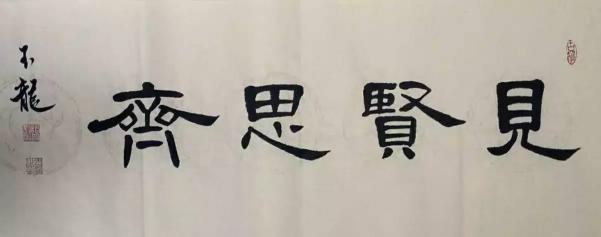 見賢思齊
龍